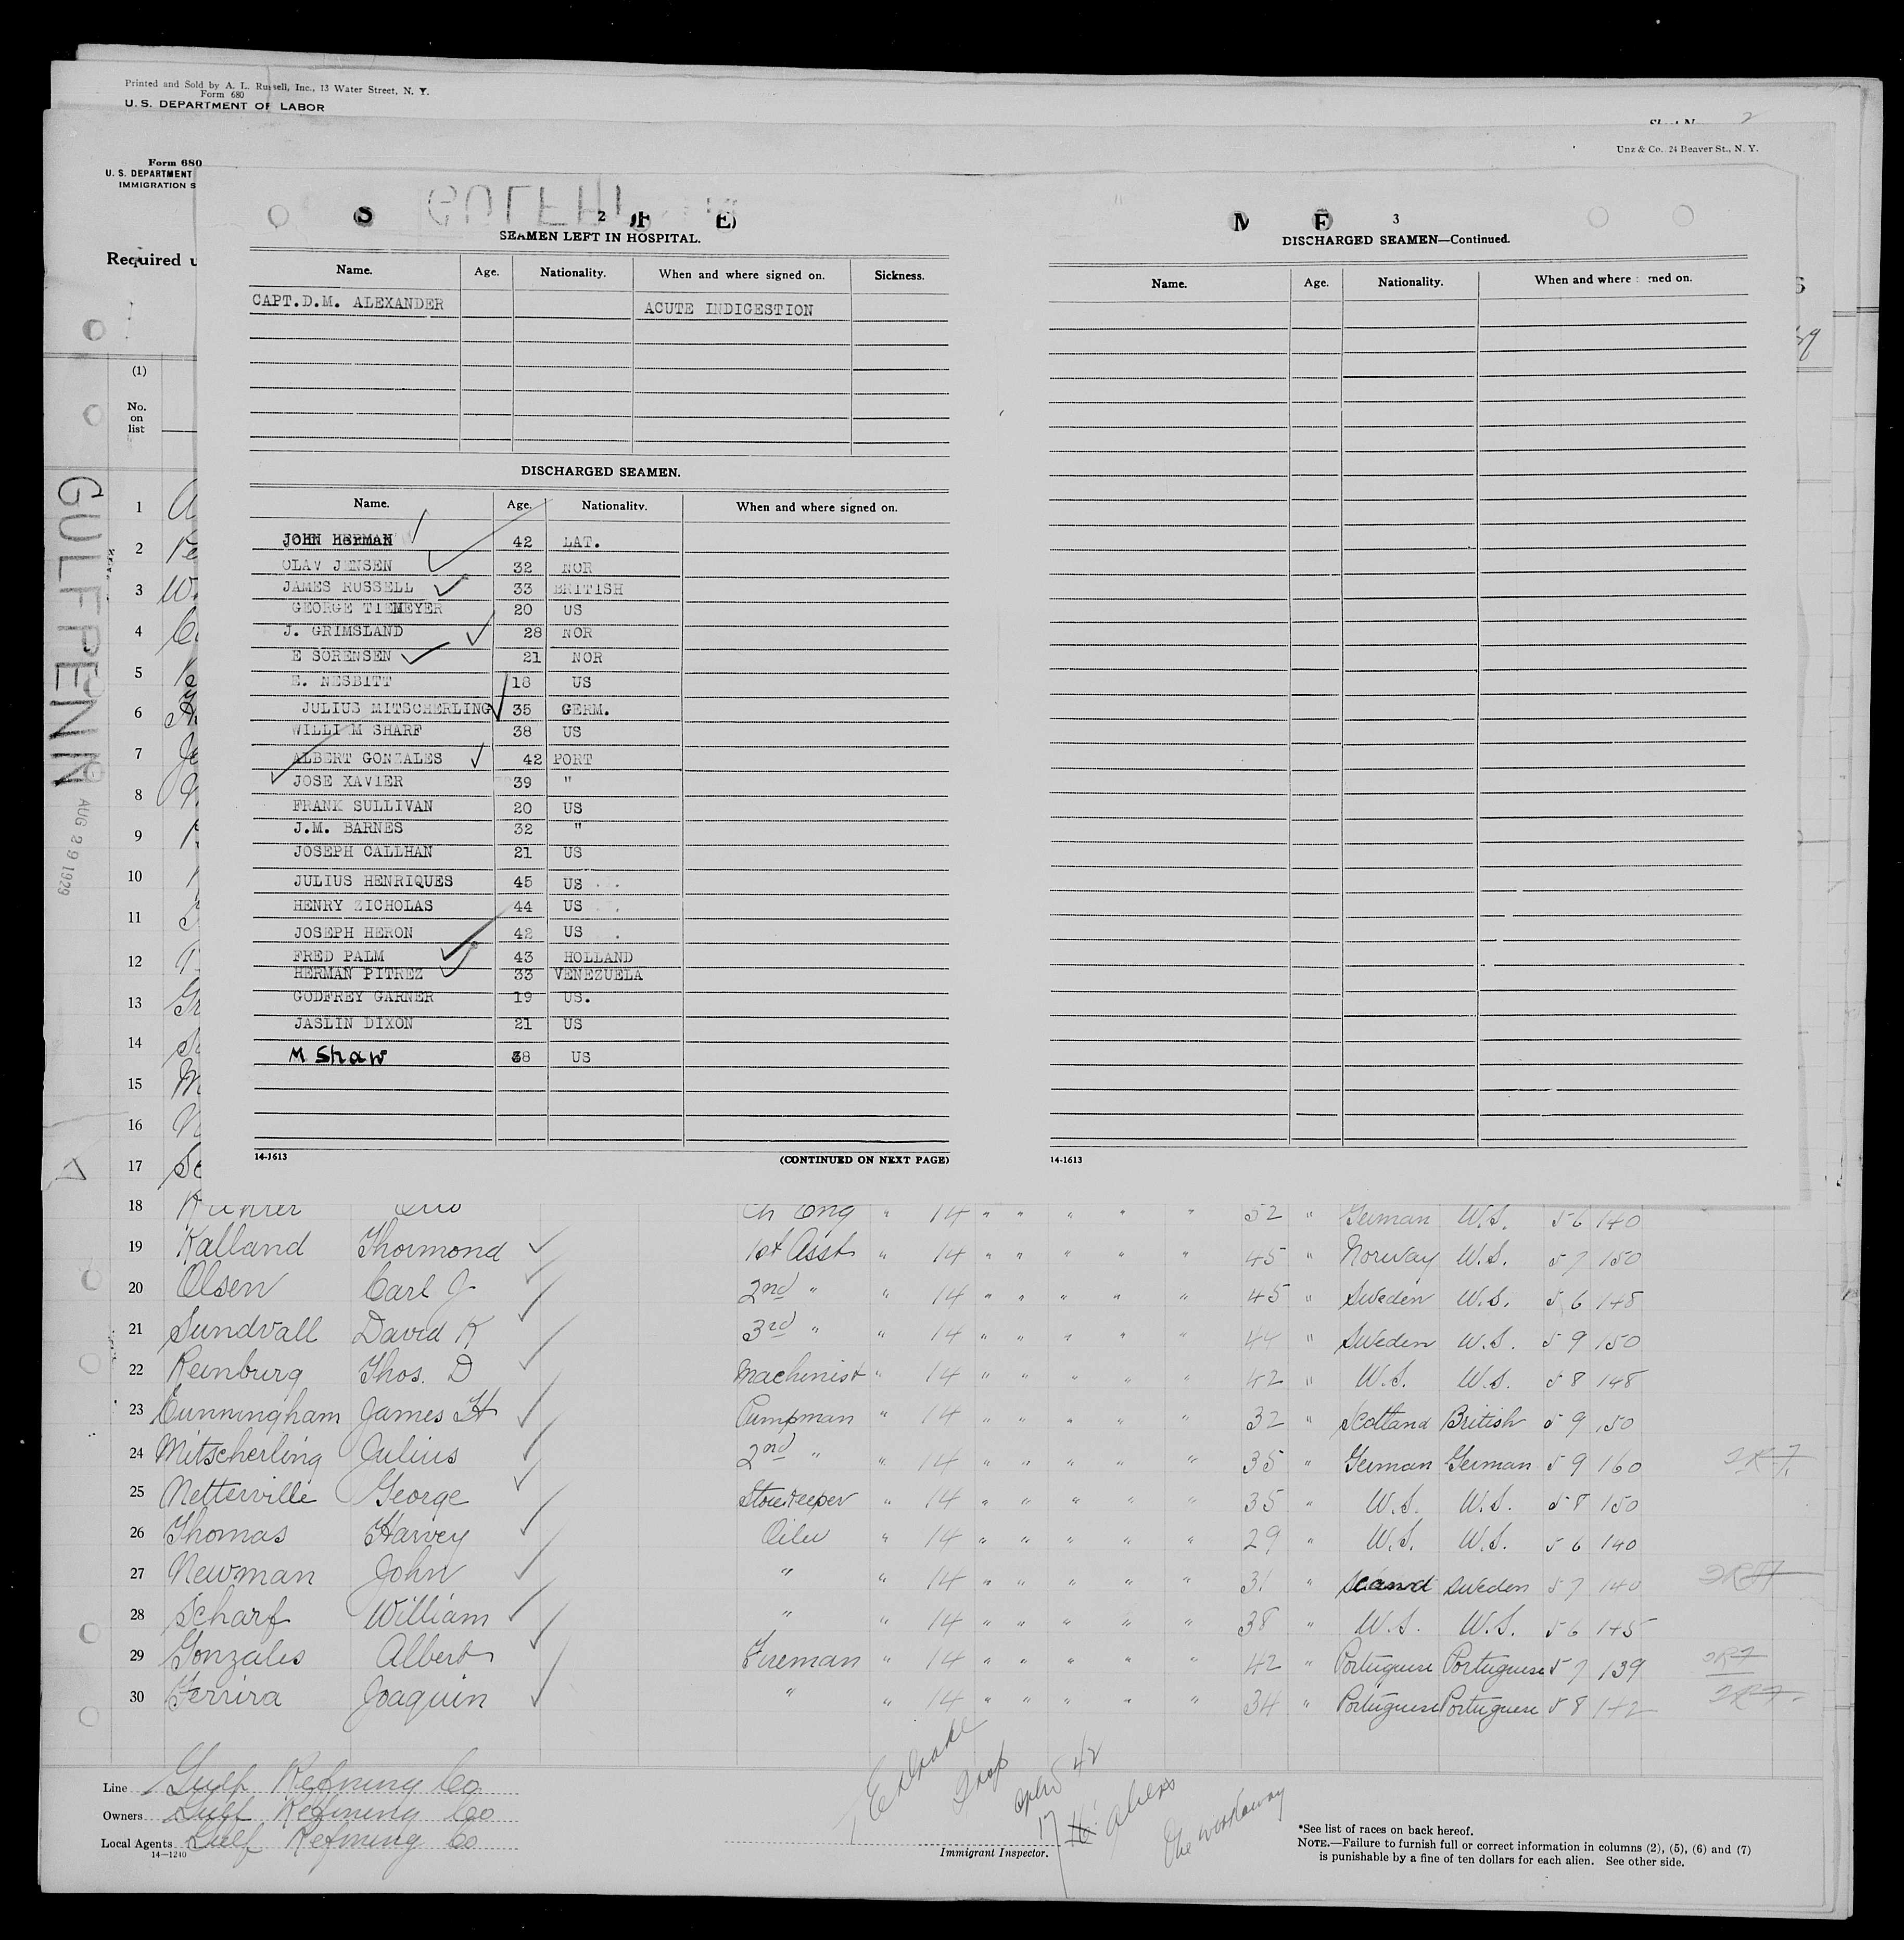 Printed and Sold by A. L. Russell, Inc., 13 Water Street, N. Y.
Form 680
U. S. DEPARTMENT OF LABOR
2
Unz & Co. 24 Beaver St., N. Y.
Form 680
U. S. DEPARTMENT
IMMIGRATION S
Required u
(1)
No.
on
list
GULFPENN
AUG 29 1929
S 2 F E)
SEAMEN LEFT IN HOSPITAL.
Name. Age. Nationality. When and where signed on. Sickness.
CAPT.D.M. ALEXANDER ACUTE INDIGESTION
DISCHARGED SEAMEN.
Name. Age. Nationality. When and where signed on.
JOHN HERMAN 42 LAT.
OLAV JENSEN 32 NOR
JAMES RUSSELL 33 BRITISH
GEORGE TIEMEYER 20 US
J. GRIMSLAND 28 NOR
E SORENSEN 21 NOR
E. NESBITT 18 US
JULIUS MITSCHERLING 35 GERM.
WILLI M SHARF 38 US
ALBERT GONZALES 42 PORT
JOSE XAVIER 39 "
FRANK SULLIVAN 20 US
J.M. BARNES 32 "
JOSEPH CALLHAN 21 US
JULIUS HENRIQUES 45 US
HENRY ZICHOLAS 44 US
JOSEPH HERON 42 US
FRED PALM 43 HOLLAND
HERMAN PITREZ 33 VENEZUELA
GODFREY GARNER 19 US.
JASLIN DIXON 21 US
M Shaw 38 US
14-1613 (CONTINUED ON NEXT PAGE)
M F 3
DISCHARGED SEAMEN—Continued.
Name. Age. Nationality. When and where signed on.
14-1613
1
2
3
4
5
6
7
8
9
10
11
12
13
14
15
16
17
18 Otto Ch Eng " 14 " " " " " 52 " German U.S. 5 6 140
19 Kalland Thormond 1st Asst " 14 " " " " " 45 " Norway U.S. 5 7 150
20 Olsen Carl J 2nd " " 14 " " " " " 45 " Sweden U.S. 5 6 148
21 Sundvall David K 3rd " " 14 " " " " " 44 " Sweden U.S. 5 9 150
22 Reinburg Thos. D Machinist " 14 " " " " " 42 " U.S. U.S. 5 8 148
23 Cunningham James H Pumpman " 14 " " " " " 32 " Scotland British 5 9 150
24 Mitscherling Julius 2nd " " 14 " " " " " 35 " German German 5 9 160
25 Netterville George Storekeeper " 14 " " " " " 35 " U.S. U.S. 5 8 150
26 Thomas Harvey Oiler " 14 " " " " " 29 " U.S. U.S. 5 6 140
27 Newman John " " 14 " " " " " 31 " Scand Sweden 5 7 140
28 Scharf William " " 14 " " " " " 38 " U.S. U.S. 5 6 145
29 Gonzales Albert Fireman " 14 " " " " " 42 " Portuguese Portuguese 5 7 139
30 Ferrira Joaquin " " 14 " " " " " 34 " Portuguese Portuguese 5 8 142
Line Gulf Refining Co.
Owners Gulf Refining Co
Local Agents Gulf Refining Co
14-1240
Immigrant Inspector.
42
17 aliens
One workaway
*See list of races on back hereof.
NOTE.—Failure to furnish full or correct information in columns (2), (5), (6) and (7)
is punishable by a fine of ten dollars for each alien. See other side.